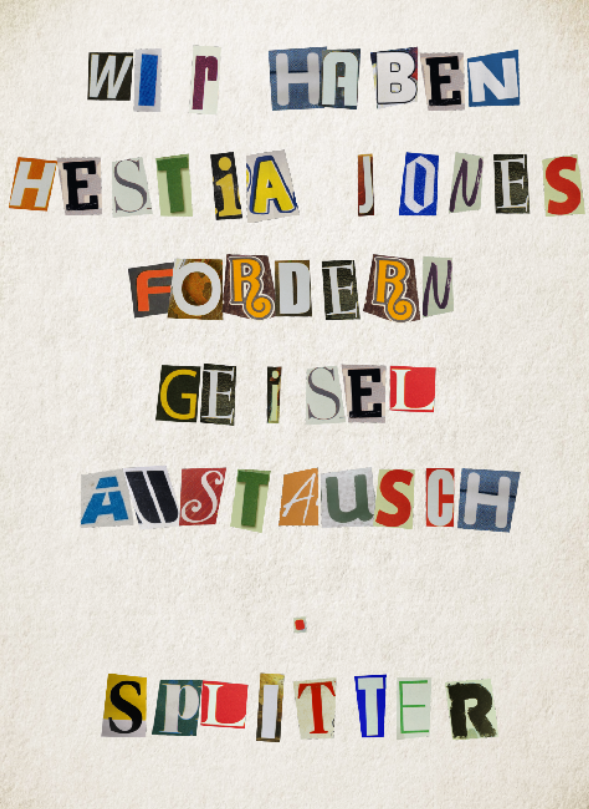 WIr HABEN
HESTiA JONES
FORDERN
GEiSEL
AUSTAUSCH
.
SPLITTER